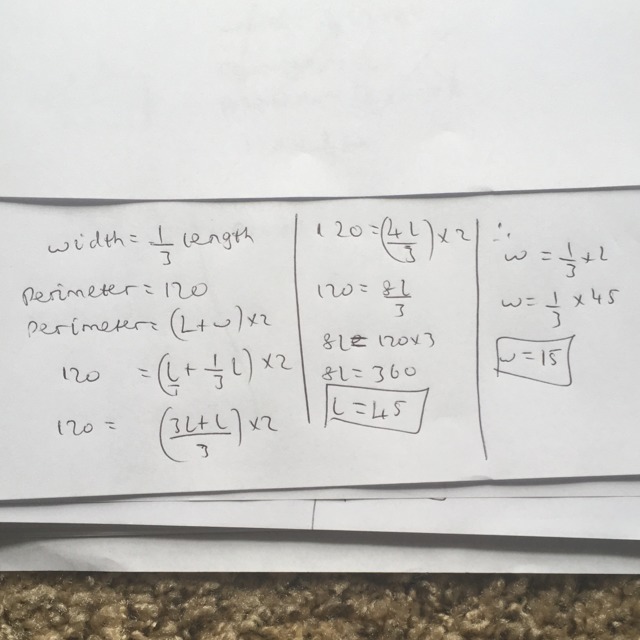 width = 1/3 length
Perimeter = 120
Perimeter = (L+w)×2
120 = (L/3 + 1/3 L)×2
120 = (3L+L/3)×2
120 = (4L/3)×2
120 = 8L/3
8L = 120×3
8L = 360
L = 45
∴
w = 1/3 × L
w = 1/3 × 45
w = 15